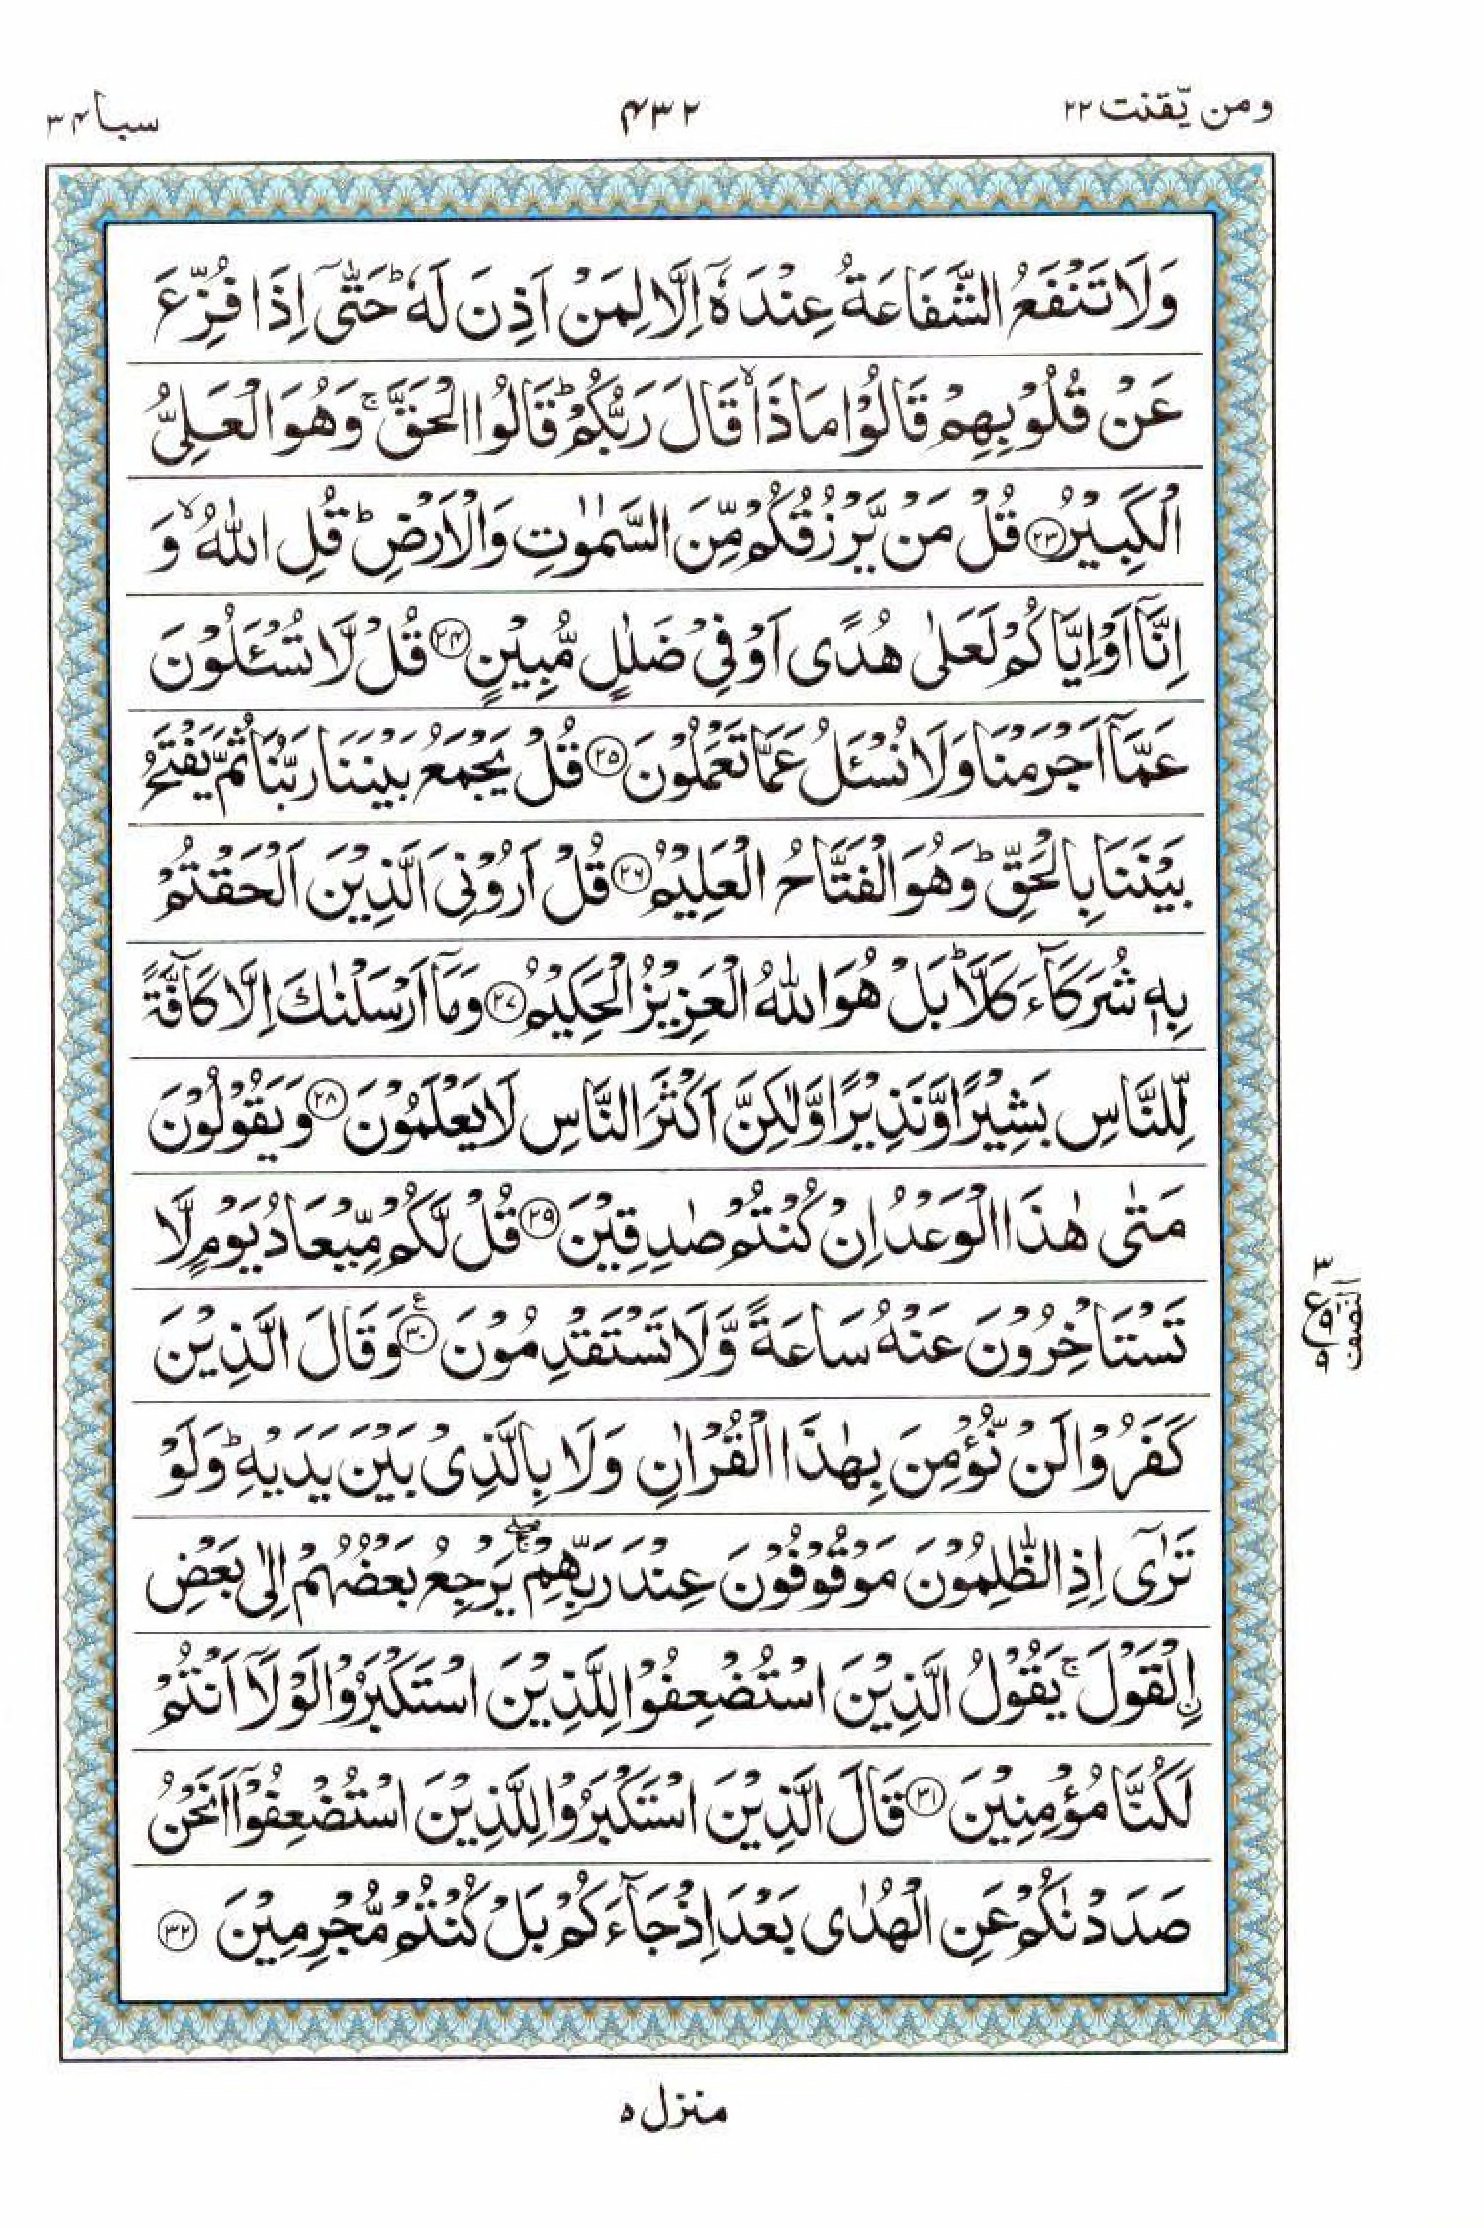 ومن يّقنت ٢٢
۴٣٢
سبا ٣۴
وَلَا تَنْفَعُ الشَّفَاعَةُ عِنْدَهٗۤ اِلَّا لِمَنْ اَذِنَ لَهٗ ؕ حَتّٰۤى اِذَا فُزِّعَ
عَنْ قُلُوْبِهِمْ قَالُوْا مَاذَا ۙ قَالَ رَبُّكُمْ ؕ قَالُوا الْحَقَّ ۚ وَهُوَ الْعَلِىُّ
الْكَبِيْرُ ﴿٢٣﴾ قُلْ مَنْ يَّرْزُقُكُمْ مِّنَ السَّمٰوٰتِ وَالْاَرْضِ ؕ قُلِ اللّٰهُ ۙ وَ
اِنَّاۤ اَوْ اِيَّاكُمْ لَعَلٰى هُدًى اَوْ فِىْ ضَلٰلٍ مُّبِيْنٍ ﴿٢۴﴾ قُلْ لَّا تُسْـَٔلُوْنَ
عَمَّاۤ اَجْرَمْنَا وَلَا نُسْـَٔلُ عَمَّا تَعْمَلُوْنَ ﴿٢٥﴾ قُلْ يَجْمَعُ بَيْنَنَا رَبُّنَا ثُمَّ يَفْتَحُ
بَيْنَنَا بِالْحَقِّ ؕ وَهُوَ الْفَتَّاحُ الْعَلِيْمُ ﴿٢٦﴾ قُلْ اَرُوْنِىَ الَّذِيْنَ اَلْحَقْتُمْ
بِهٖ شُرَكَآءَ كَلَّا ؕ بَلْ هُوَ اللّٰهُ الْعَزِيْزُ الْحَكِيْمُ ﴿٢٧﴾ وَمَاۤ اَرْسَلْنٰكَ اِلَّا كَآفَّةً
لِّلنَّاسِ بَشِيْرًا وَّنَذِيْرًا وَّلٰكِنَّ اَكْثَرَ النَّاسِ لَا يَعْلَمُوْنَ ﴿٢٨﴾ وَيَقُوْلُوْنَ
مَتٰى هٰذَا الْوَعْدُ اِنْ كُنْتُمْ صٰدِقِيْنَ ﴿٢٩﴾ قُلْ لَّكُمْ مِّيْعَادُ يَوْمٍ لَّا
تَسْتَاْخِرُوْنَ عَنْهُ سَاعَةً وَّلَا تَسْتَقْدِمُوْنَ ﴿٣٠﴾ ع وَقَالَ الَّذِيْنَ
كَفَرُوْا لَنْ نُّؤْمِنَ بِهٰذَا الْقُرْاٰنِ وَلَا بِالَّذِىْ بَيْنَ يَدَيْهِ ؕ وَلَوْ
تَرٰۤى اِذِ الظّٰلِمُوْنَ مَوْقُوْفُوْنَ عِنْدَ رَبِّهِمْ ۖۚ يَرْجِعُ بَعْضُهُمْ اِلٰى بَعْضِ
ن‌ِ الْقَوْلَ ۚ يَقُوْلُ الَّذِيْنَ اسْتُضْعِفُوْا لِلَّذِيْنَ اسْتَكْبَرُوْا لَوْلَاۤ اَنْتُمْ
لَكُنَّا مُؤْمِنِيْنَ ﴿٣١﴾ قَالَ الَّذِيْنَ اسْتَكْبَرُوْا لِلَّذِيْنَ اسْتُضْعِفُوْۤا اَنَحْنُ
صَدَدْنٰكُمْ عَنِ الْهُدٰى بَعْدَ اِذْ جَآءَكُمْ بَلْ كُنْتُمْ مُّجْرِمِيْنَ ﴿٣٢﴾
٣
ع ٩
٩
النصف
منزل ٥